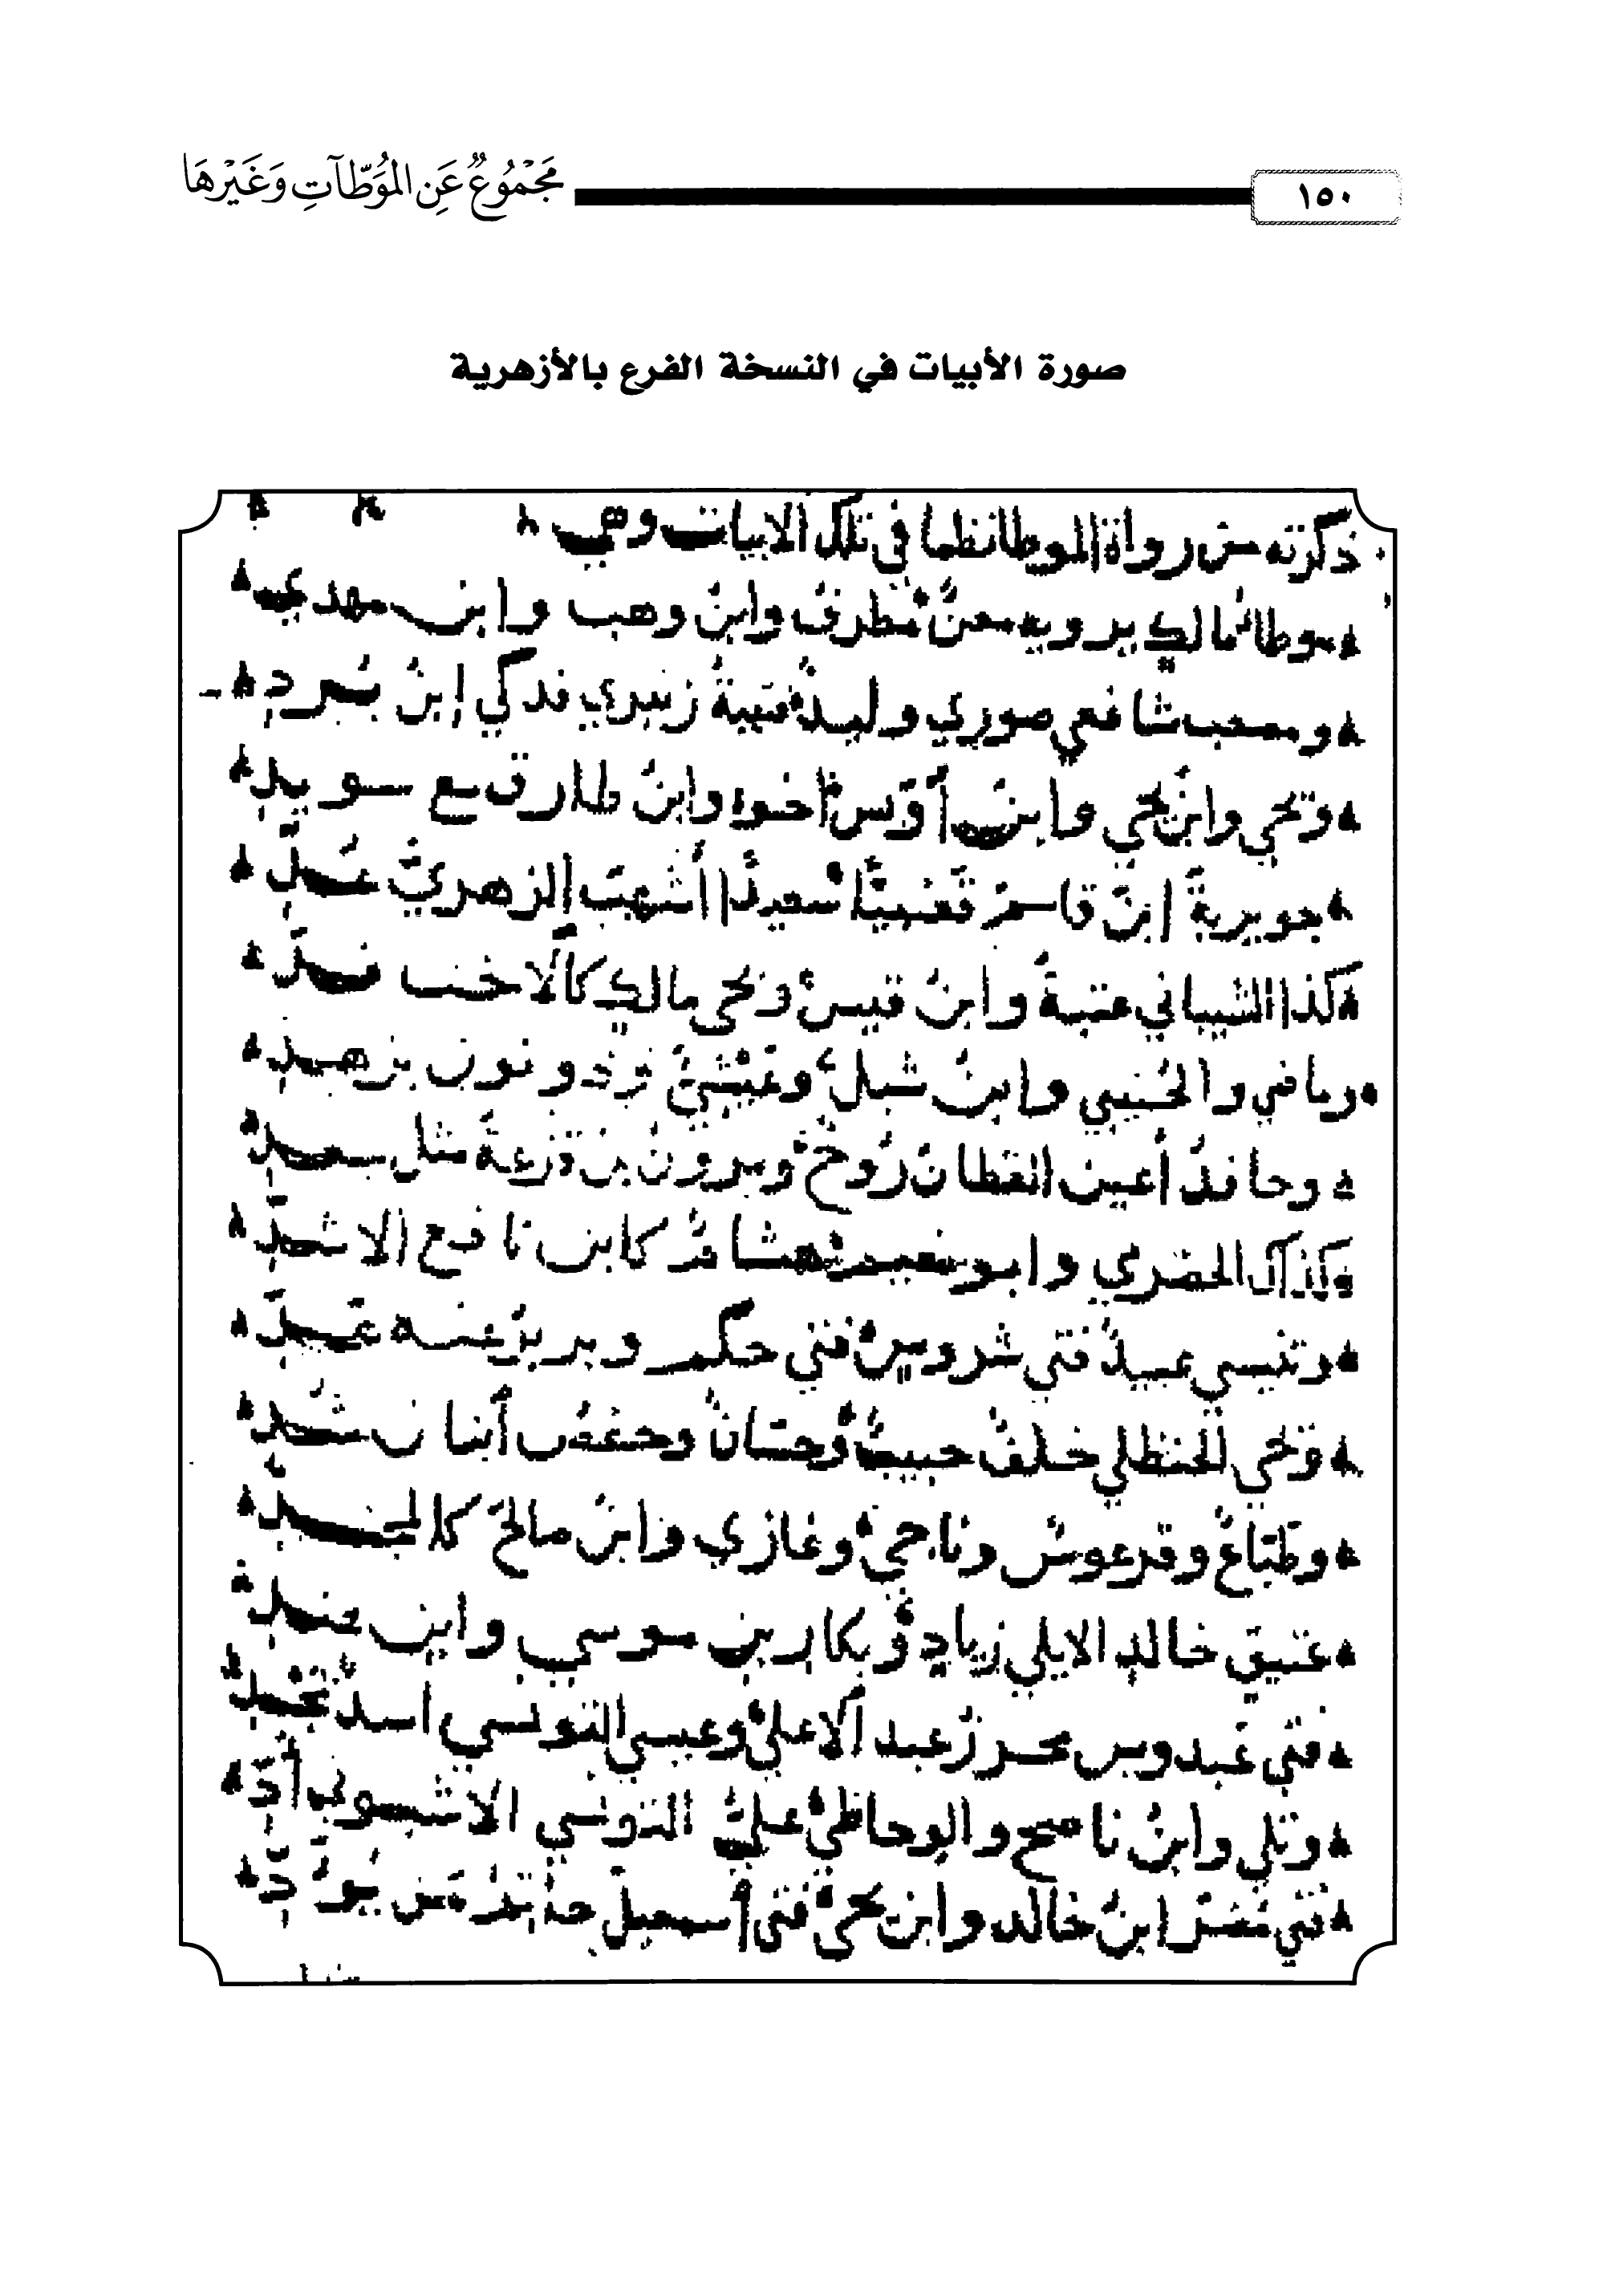 مَجْمُوعٌ عَنِ المُوَطّآتِ وَغَيْرِهَا
١٥٠
صورة الأبيات في النسخة الفرع بالأزهرية
ذكرته من رواة الموطا نظما في تلك الابيات وهي
موطا مالك يرويه معن مطرف وابن وهب وابن مهدي
ومصعب شافعي صوري وليد قتيبة زبيري فدكي ابن برد
ويحيى وابن يحيى وابن أوس اخوه وابن طارق مع سويد
جويرية ابن قاسم قعنبيا سعيدا أشهب الزهري عد
كذا الشيباني عتبة وابن قيس ويحيى مالك
وما في والحنيني وابن شبل وعيسى ونون
وحافد أعين القطان روح ومرون بن قزعة مثل سعد
وكذاك الخضري وابو نعيم هشام كابن نافع الاشد
وتنيسي عبيد فتى شروس فتى حكم وبربر عنه
ويحيى الحنظلي خلف حبيب وحسان وحفص أبنا
وطباع وقرعوس وناجي وغازي وابن صالح
عتيق خالد الايلي زياد وبكار بن موسي وابن هند
فتى عبدوس محرز عبد الاعلى وعيسى التونسي اسد
وتلي وابن ناصح والوحاظي علي التونسي
فتى مضر ابن خالد وابن يحيى فتى أسمعيل